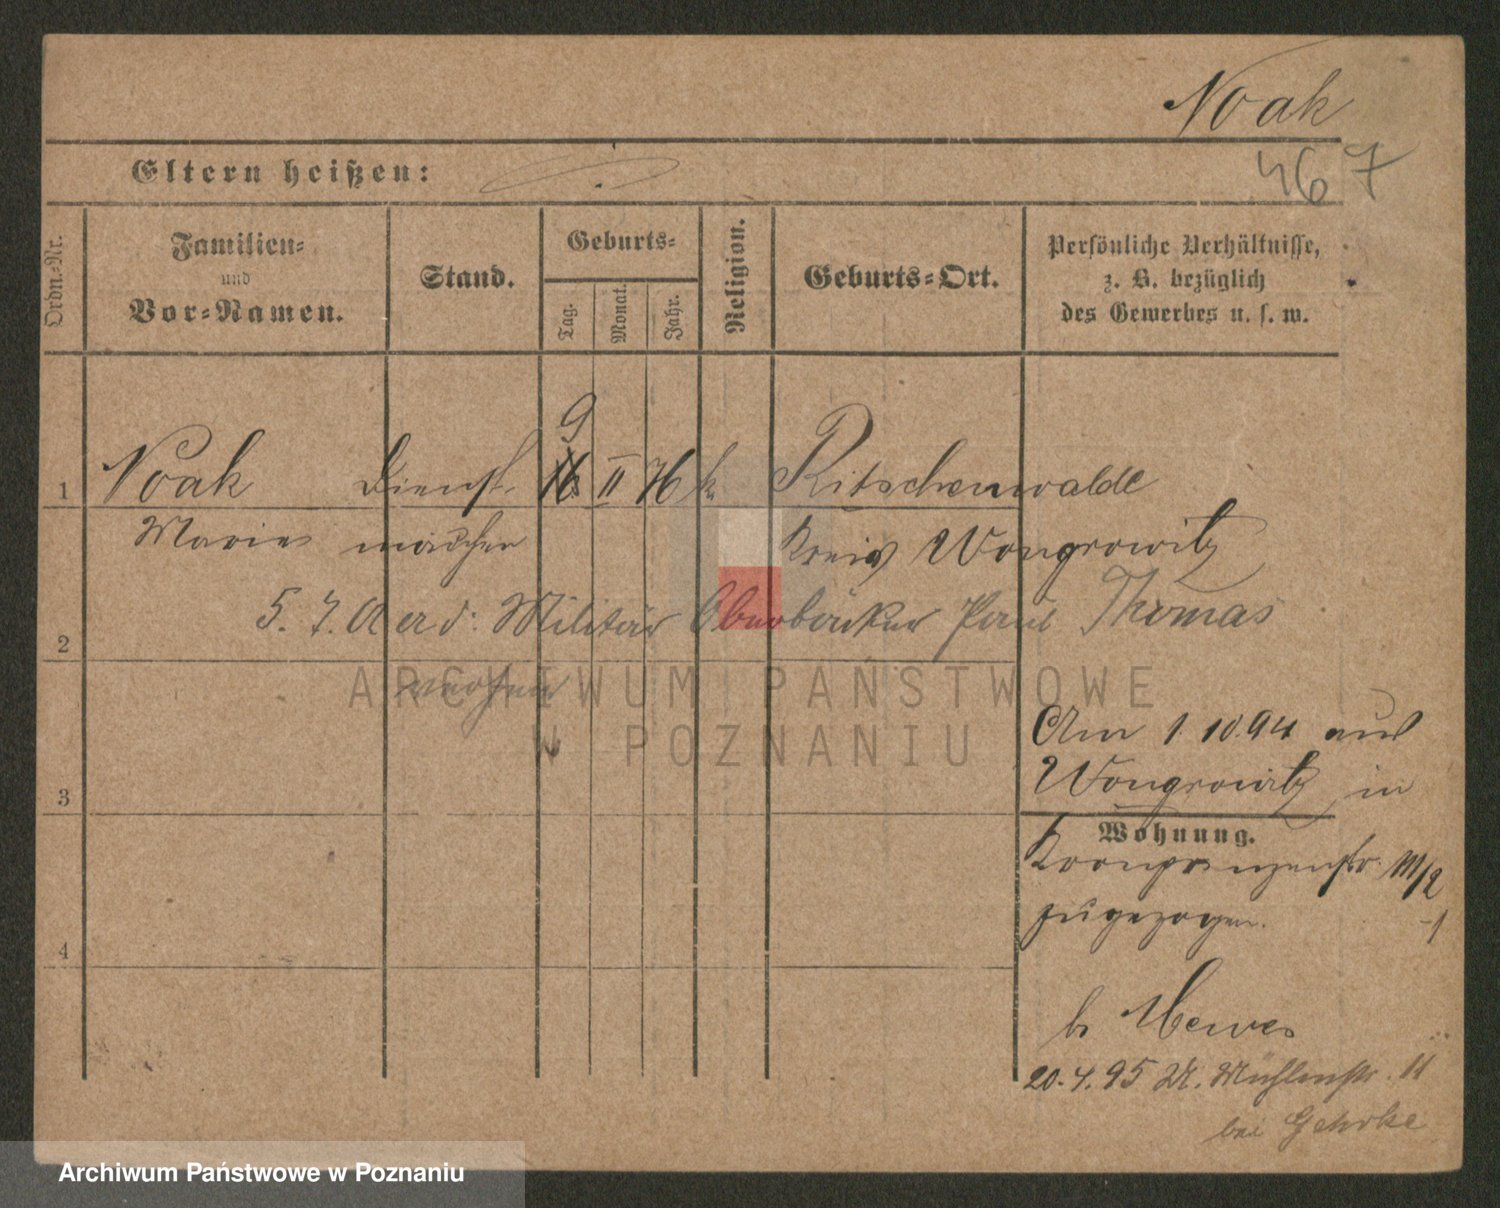 Noak
467
Eltern heißen:
Ordn.-Nr.
Familien-
und
Vor-Namen.
Stand.
Geburts-
Tag.
Monat.
Jahr.
Religion.
Geburts-Ort.
Persönliche Verhältnisse,
z. B. bezüglich
des Gewerbes u. s. w.
9
1 Noak Dienst- 16 II 76 k Ritschenwalde
Marie mädchen Kreis Wongrowitz
5. 7. Militär Oberbäcker Paul Thomas
2
ARCHIWUM PAŃSTWOWE
W POZNANIU
Am 1.10.94 aus
Wongrowitz in
3
Wohnung.
Kronprinzenstr.
zugezogen.
4
b. Mewes
20.4.95 U. Mühlenstr. 11
bei Gehrke
Archiwum Państwowe w Poznaniu